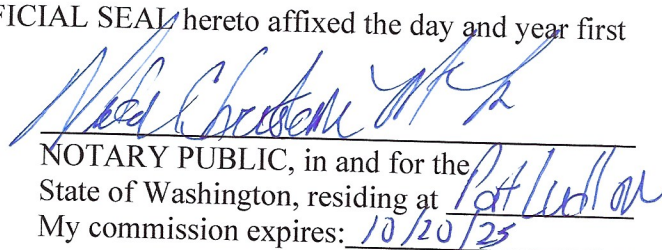 FICIAL SEAL hereto affixed the day and year first
NOTARY PUBLIC, in and for the
State of Washington, residing at Port Ludlow
My commission expires: 10/20/25